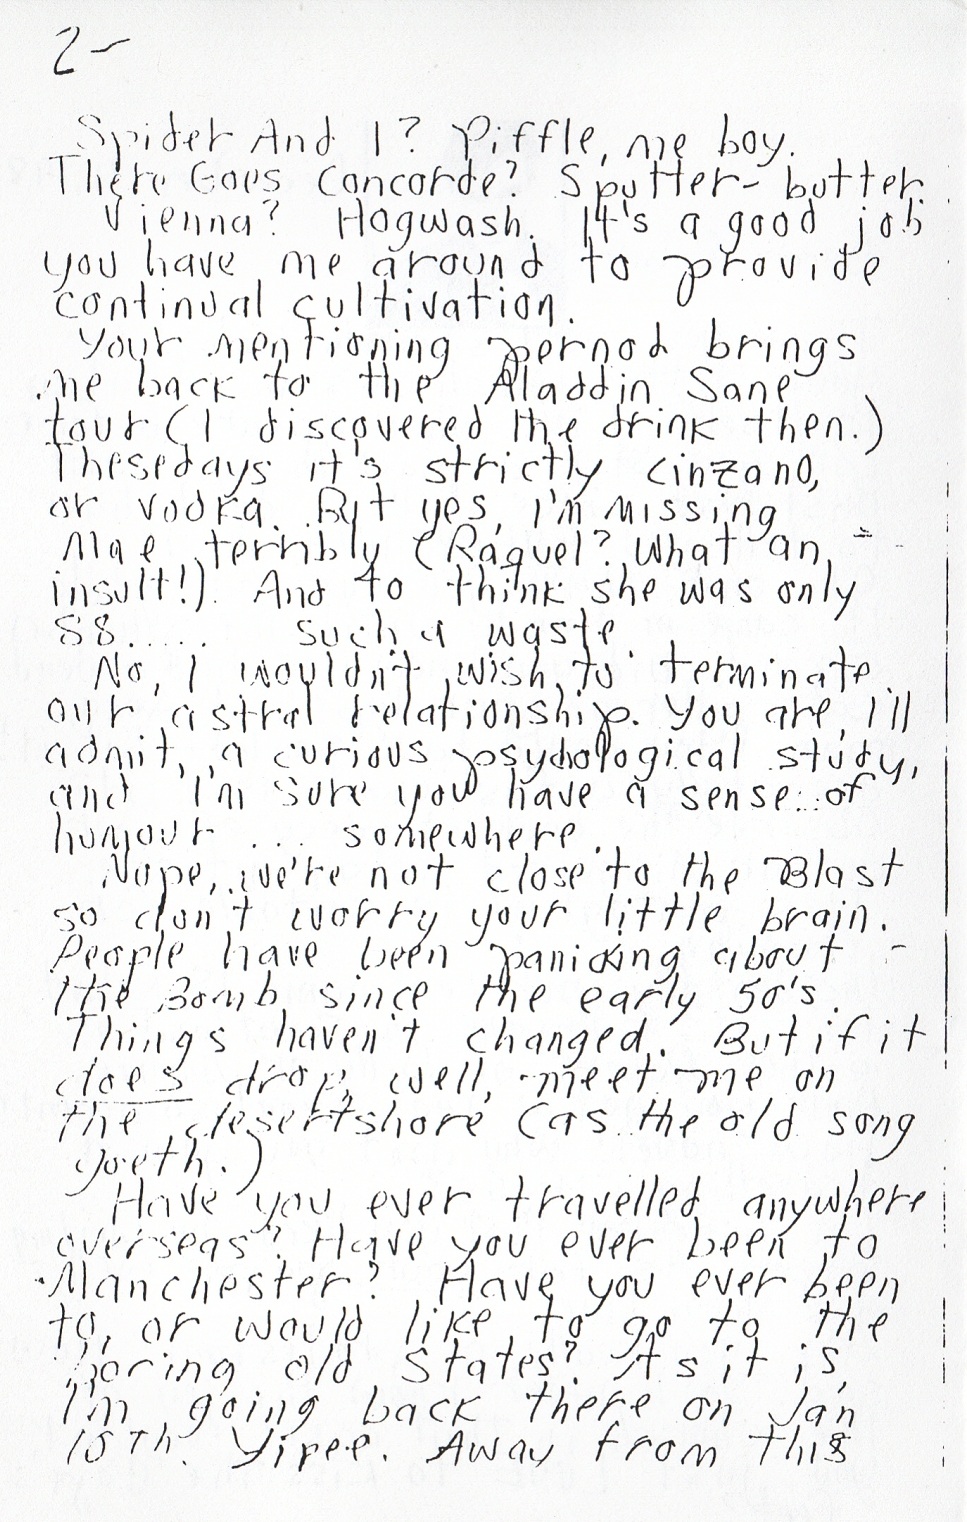 2-
Spider And I? Piffle, me boy.
There Goes Concorde? Sputter-butter.
Vienna? Hogwash. It's a good job
you have me around to provide
continual cultivation.
Your mentioning pernod brings
me back to the Aladdin Sane
tour (I discovered the drink then.)
Thesedays it's strictly Cinzano,
or vodka. But yes, I'm missing
Mae terribly (Raquel? What an
insult!). And to think she was only
88..... Such a waste.
No, I wouldn't wish to terminate
our astral relationship. You are, I'll
admit, a curious psychological study,
and I'm sure you have a sense of
humour ... somewhere.
Nope, we're not close to the Blast
so don't worry your little brain.
People have been panicking about
the Bomb since the early 50's.
Things haven't changed. But if it
does drop, well, meet me on
the desertshore (as the old song
goeth.)
Have you ever travelled anywhere
overseas? Have you ever been to
Manchester? Have you ever been
to, or would like to go to the
boring old States? As it is,
I'm going back there on Jan
10th. Yipee. Away from this